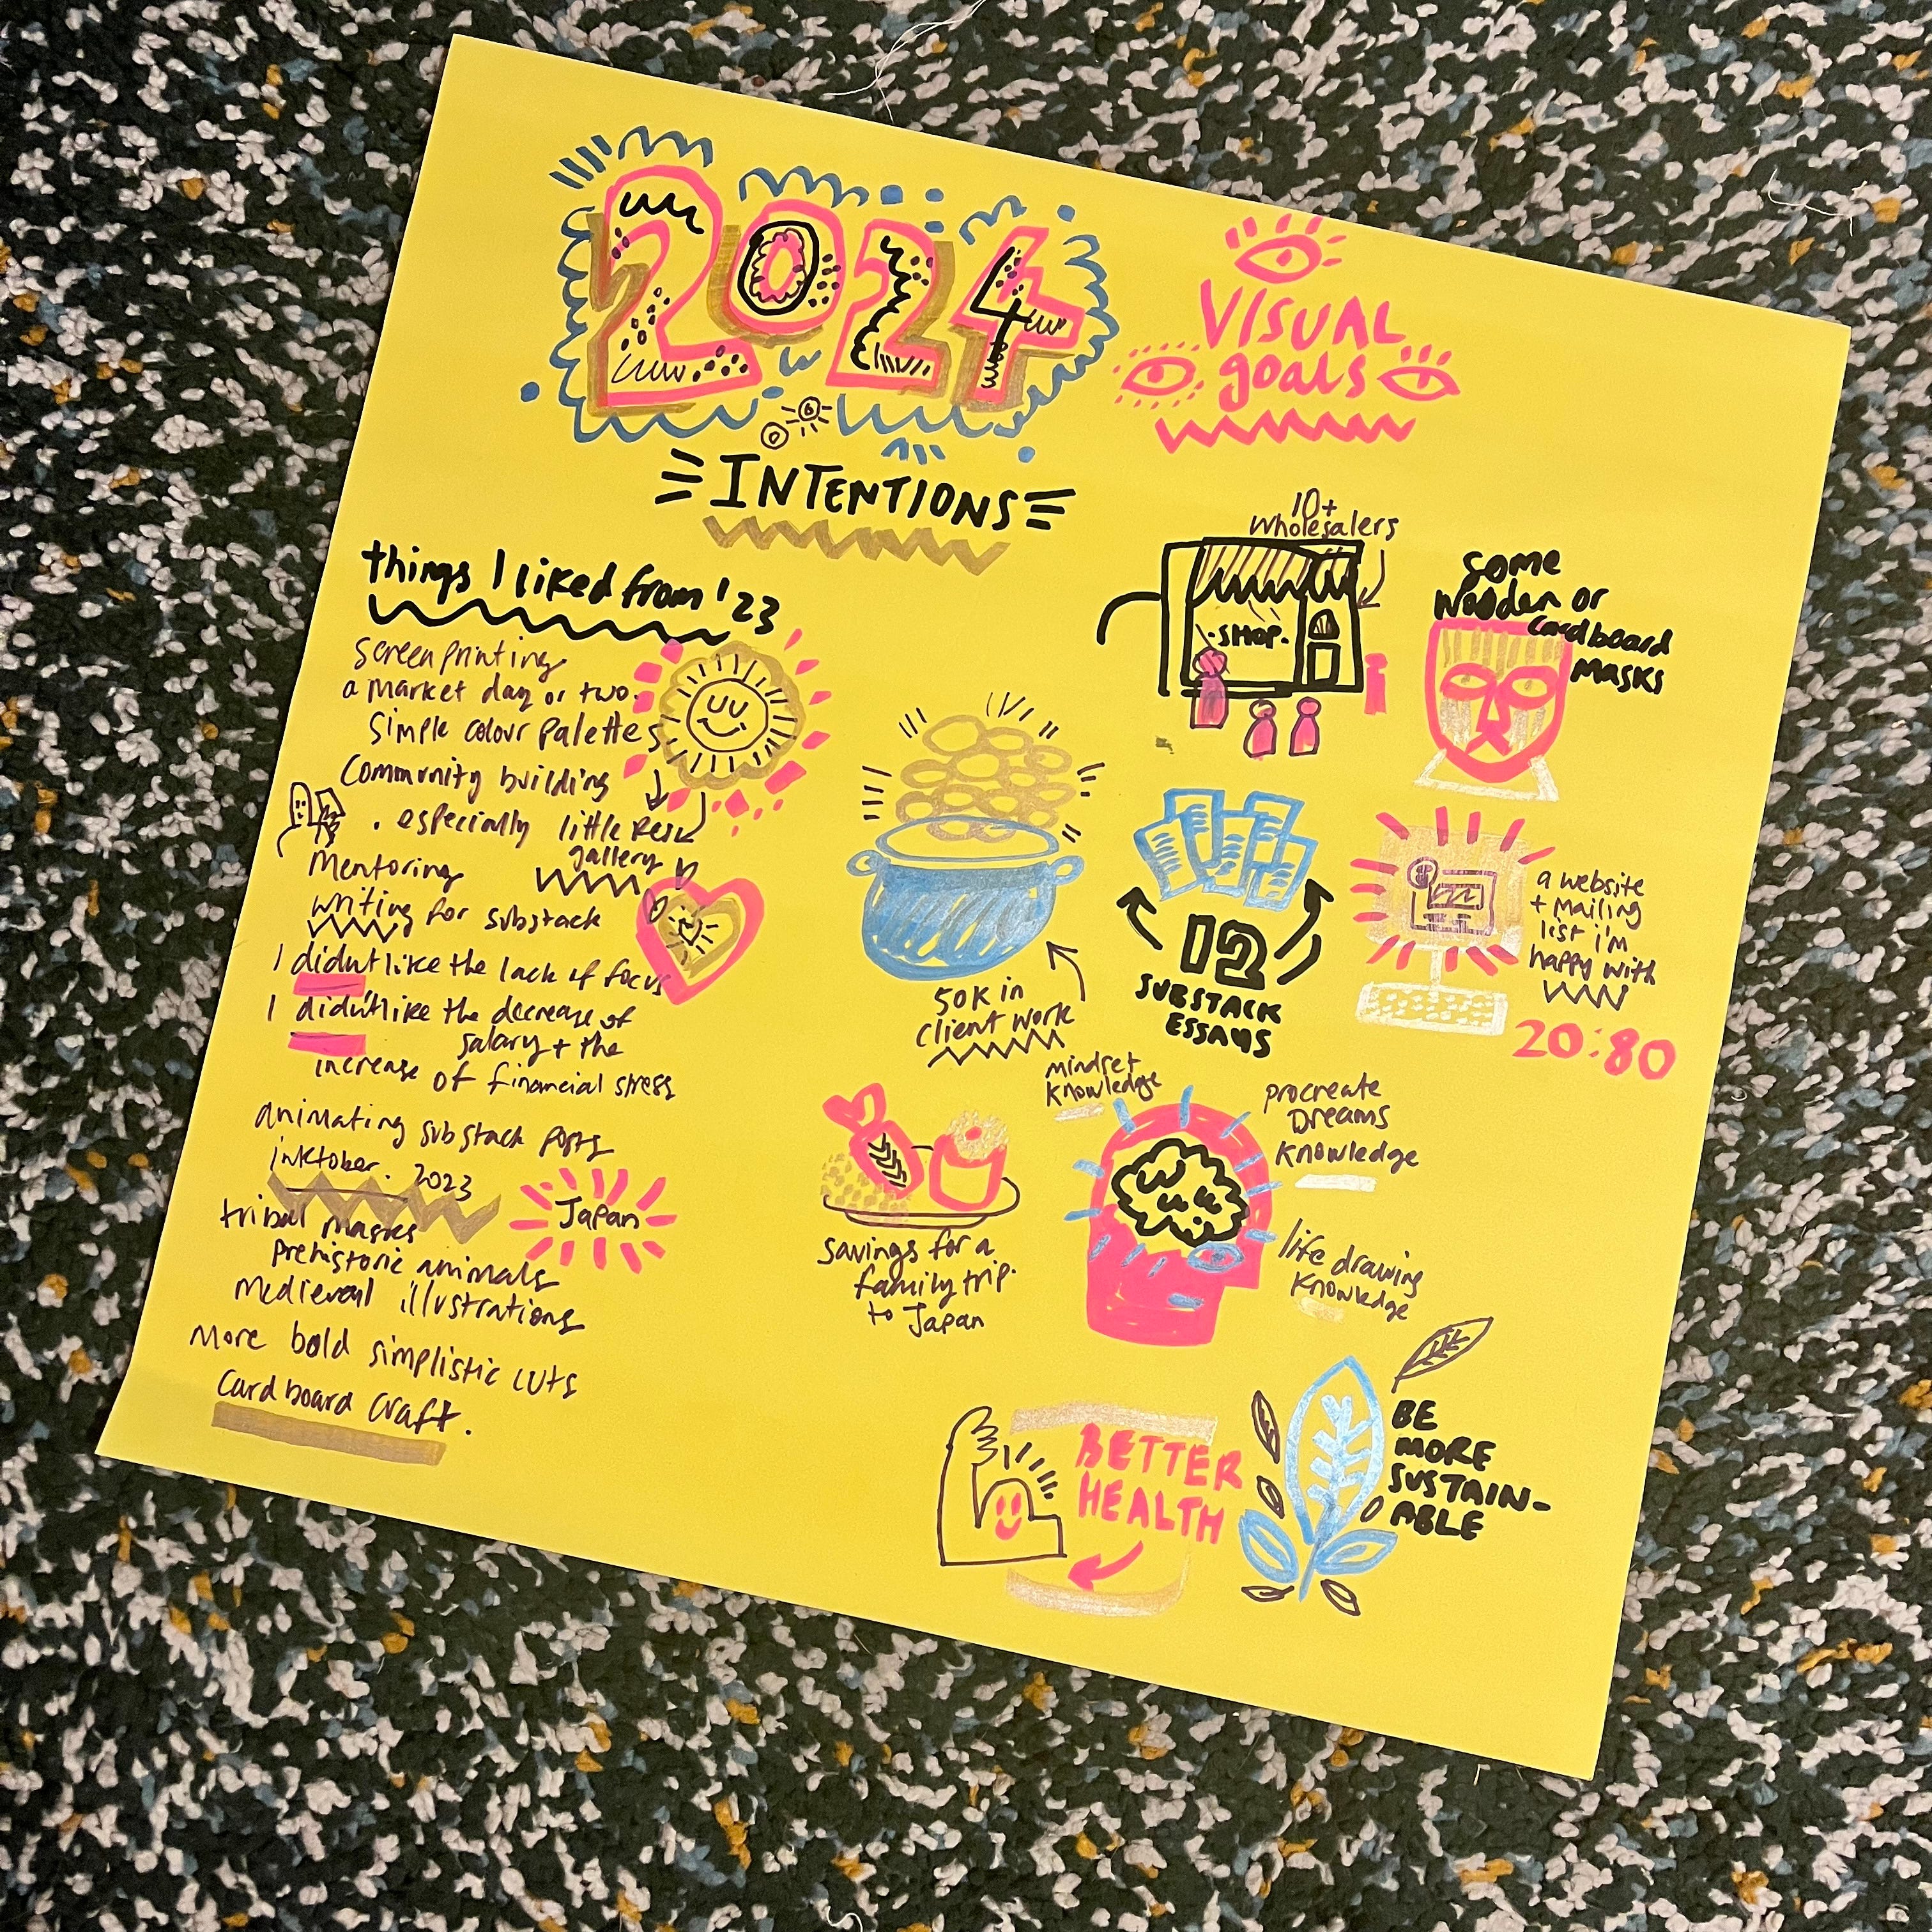 2024
INTENTIONS
things I liked from '23
screenprinting
a market day or two.
simple colour palettes
Community building
. especially little Resk
gallery
Mentoring
writing for substack
I didn't like the lack of focus
I didn't like the decrease of
salary + the
increase of financial stress
animating substack posts
inktober. 2023
Japan
tribal masks
prehistoric animals
Medieval illustrations
More bold simplistic cuts
Cardboard craft.
VISUAL
goals
10+
wholesalers
·SHOP.
some
wooden or
cardboard
masks
50K in
client work
12
SUBSTACK
ESSAYS
a website
+ mailing
list i'm
happy with
20:80
mindset
knowledge
procreate
Dreams
knowledge
life drawing
knowledge
savings for a
family trip.
to Japan
BETTER
HEALTH
BE
MORE
SUSTAIN-
ABLE